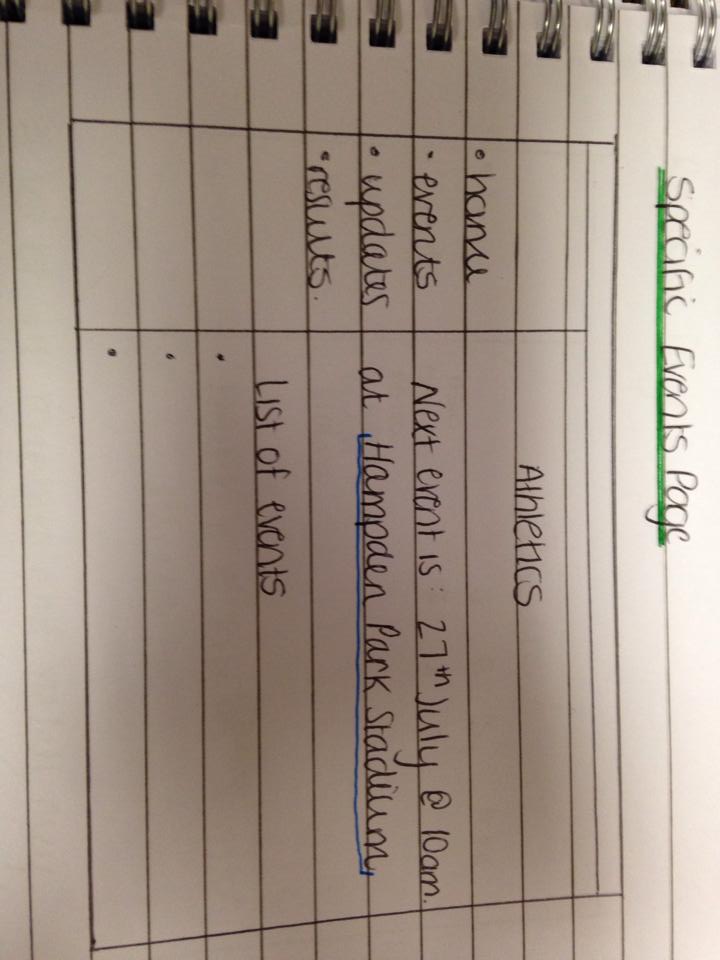 Specific Events Page
Athletics
• home
• events
• updates
• results.
Next event is: 27th July @ 10am.
at Hampden Park Stadium
List of events
•
•
•